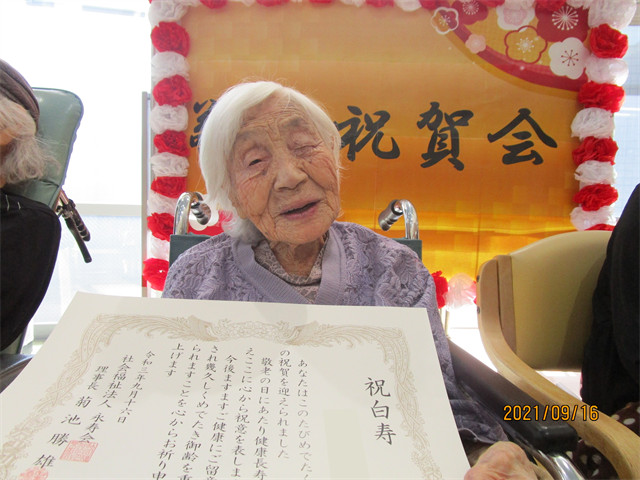 祝賀会
祝白寿
あなたはこのたびめでたく
の祝賀を迎えられました
敬老の日にあたり健康長寿
えここに心から祝意を表しま
今後ますますご健康にご留意
され幾久しくめでたき御齢を重
られますことを心からお祈り申
上げます
令和三年九月十六日
社会福祉法人
理事長 菊池勝雄
2021/09/16